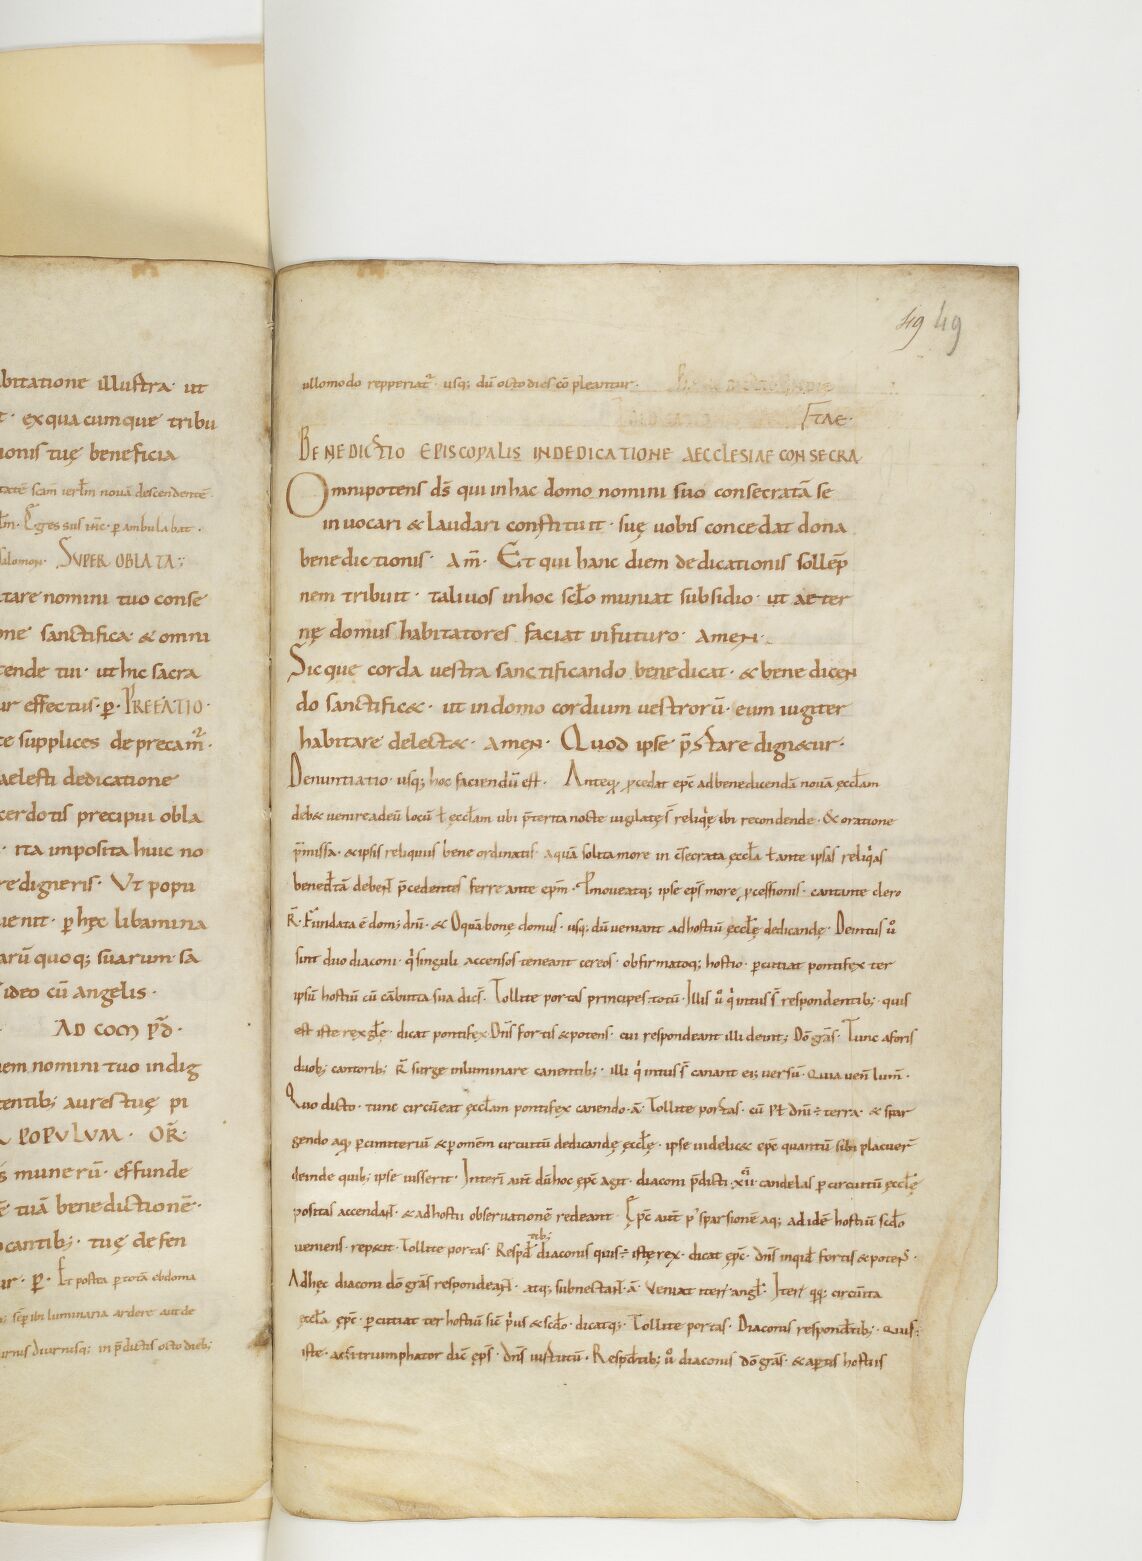 bitatione illustra· ut
t· ex quacumque tribu
ionis tuę beneficia
tatē scam ierłm nouā descendentē
łm· Egressus inc· p ambulabat·
salomon· SUPER OBLATA
tare nomini tuo conse
one sanctifica· & omni
tende tui· ut hic sacra
ur effectus· p· PREFATIO·
te supplices deprecam̄·
aelesti dedicatione
cerdotis precipui obla
· ita imposita huic no
re digneris· Ut popu
uenit· p hęc libamina
arū quoq; suarum sa
ideo cū angelis·
AD COM PD·
iem nomini tuo indig
tentib; aures tuę pi
POPULUM· OR·
s munerū· effunde
ē tuā benedictionē·
ocantib;· tuę defen
ur· p· Et postea p totā ebdoma
sēp ibi luminaria ardere aut de
urnis diurnisq; in p̄dictis octo dieb;
49 49
ullomodo repperiat· usq; dū octo dies cōpleantur·
FTAE·
BENEDICTIO EPISCOPALIS IN DEDICATIONE AECCLESIAE CONSECRA
Omnipotens ds̄ qui in hac domo nomini suo consecratā se
inuocari & laudari constituit· suę uobis concedat dona
benedictionis· am̄· Et qui hanc diem dedicationis sollēp
nem tribuit· tali uos in hoc scło muniat subsidio· ut aeter
nę domus habitatores faciat in futuro· amen·
Sicque corda uestra sanctificando benedicat· & benedicen
do sanctific&· ut in domo cordium uestrorū· eum iugiter
habitare delect&· amen· Quod ipse p̄stare dign&ur·
Denuntiatio· usq; hoc faciendū est· Anteq, pcedat epc̄ ad benedicendā nouā ęccłam
deb& uenire ad eū locū ł ęccłam ubi p̄terita nocte uigilatę s̄ reliq̇ę ibi recondendę· & oratione
p̄missa· & ipsis reliquiis bene ordinatis aquā solita more in c̄secrata ęccła ł ante ipsas reliq̇as
bened̄tā deben̄t p̄cedentes ferre ante epm̄· Pmoueatq; ipse eps̄ more pcessionis· cantante clero
R̄· Fundata ē dom; dn̄i· & O quā bonę domus· usq; dū ueniant ad hostiū ęccłę dedicandę· Deintus u̇
sint duo diaconi· q̇ singuli accensos teneant cereos· obfirmatoq; hostio· pcutiat pontifex ter
ipsū hostiū cū cābutta sua dicēs̄· Tollite portas principes· totū· Illis u̇ q̇ intus s̄ respondentib; quis
est iste rex głę· dicat pontifex· Dn̄s fortis & potens· cui respondeant illi deint; Dō grās· Tunc a foris
duob; cantorib; R̄ surge inluminare canentib; illi q̇ intus s̄ canant ei; uersū· Quia uen̄ lum̄·
Quo dicto· tunc circūeat ęccłam pontifex canendo· ā· Tollite portas· cū pł dn̄i ÷ terra· & spar
gendo aq, p cimiteriū & p omēm circuitū dedicandę ęccłę· ipse uidelic& epc̄ quantū sibi placuer̄
deinde quib; ipse iusserit· Interī aut̄ dū hoc epc̄ agit· diaconi p̄dicti xii candelas p circuitū ęccłę
positas accendan̄t· & ad hostii obseruationē redeant· Epc̄ aut̄ p' sparsionē aq; ad idē hostiū scdo
ueniens· rep&at· Tollite portas· Respd̄tib; diaconis quis ÷ iste rex· dicat epc̄· dn̄s inquid̄ fortis & potens·
Ad hęc diaconi dō grās respondean̄t· atq; subnectan̄t· ā· Veniat iteri angł· Iteri qq; circūita
ęccła epc̄· pcutiat ter hostiū sic p̄us & scdo· dicatq;· Tollite portas· Diaconis respond̄tib;· Quis
iste· ac si triumphator dic̄ eps̄· dn̄s uirtutū· Respd̄tib; u̇ diaconis dō grās· & aptis hostiis